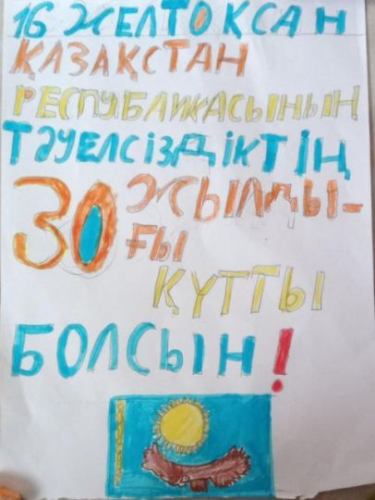 16 ЖЕЛТОҚСАН
ҚАЗАҚСТАН
РЕСПУБЛИКАСЫНЫҢ
ТӘУЕЛСІЗДІКТІҢ
30 ЖЫЛДЫ-
ҒЫ
ҚҰТТЫ
БОЛСЫН!